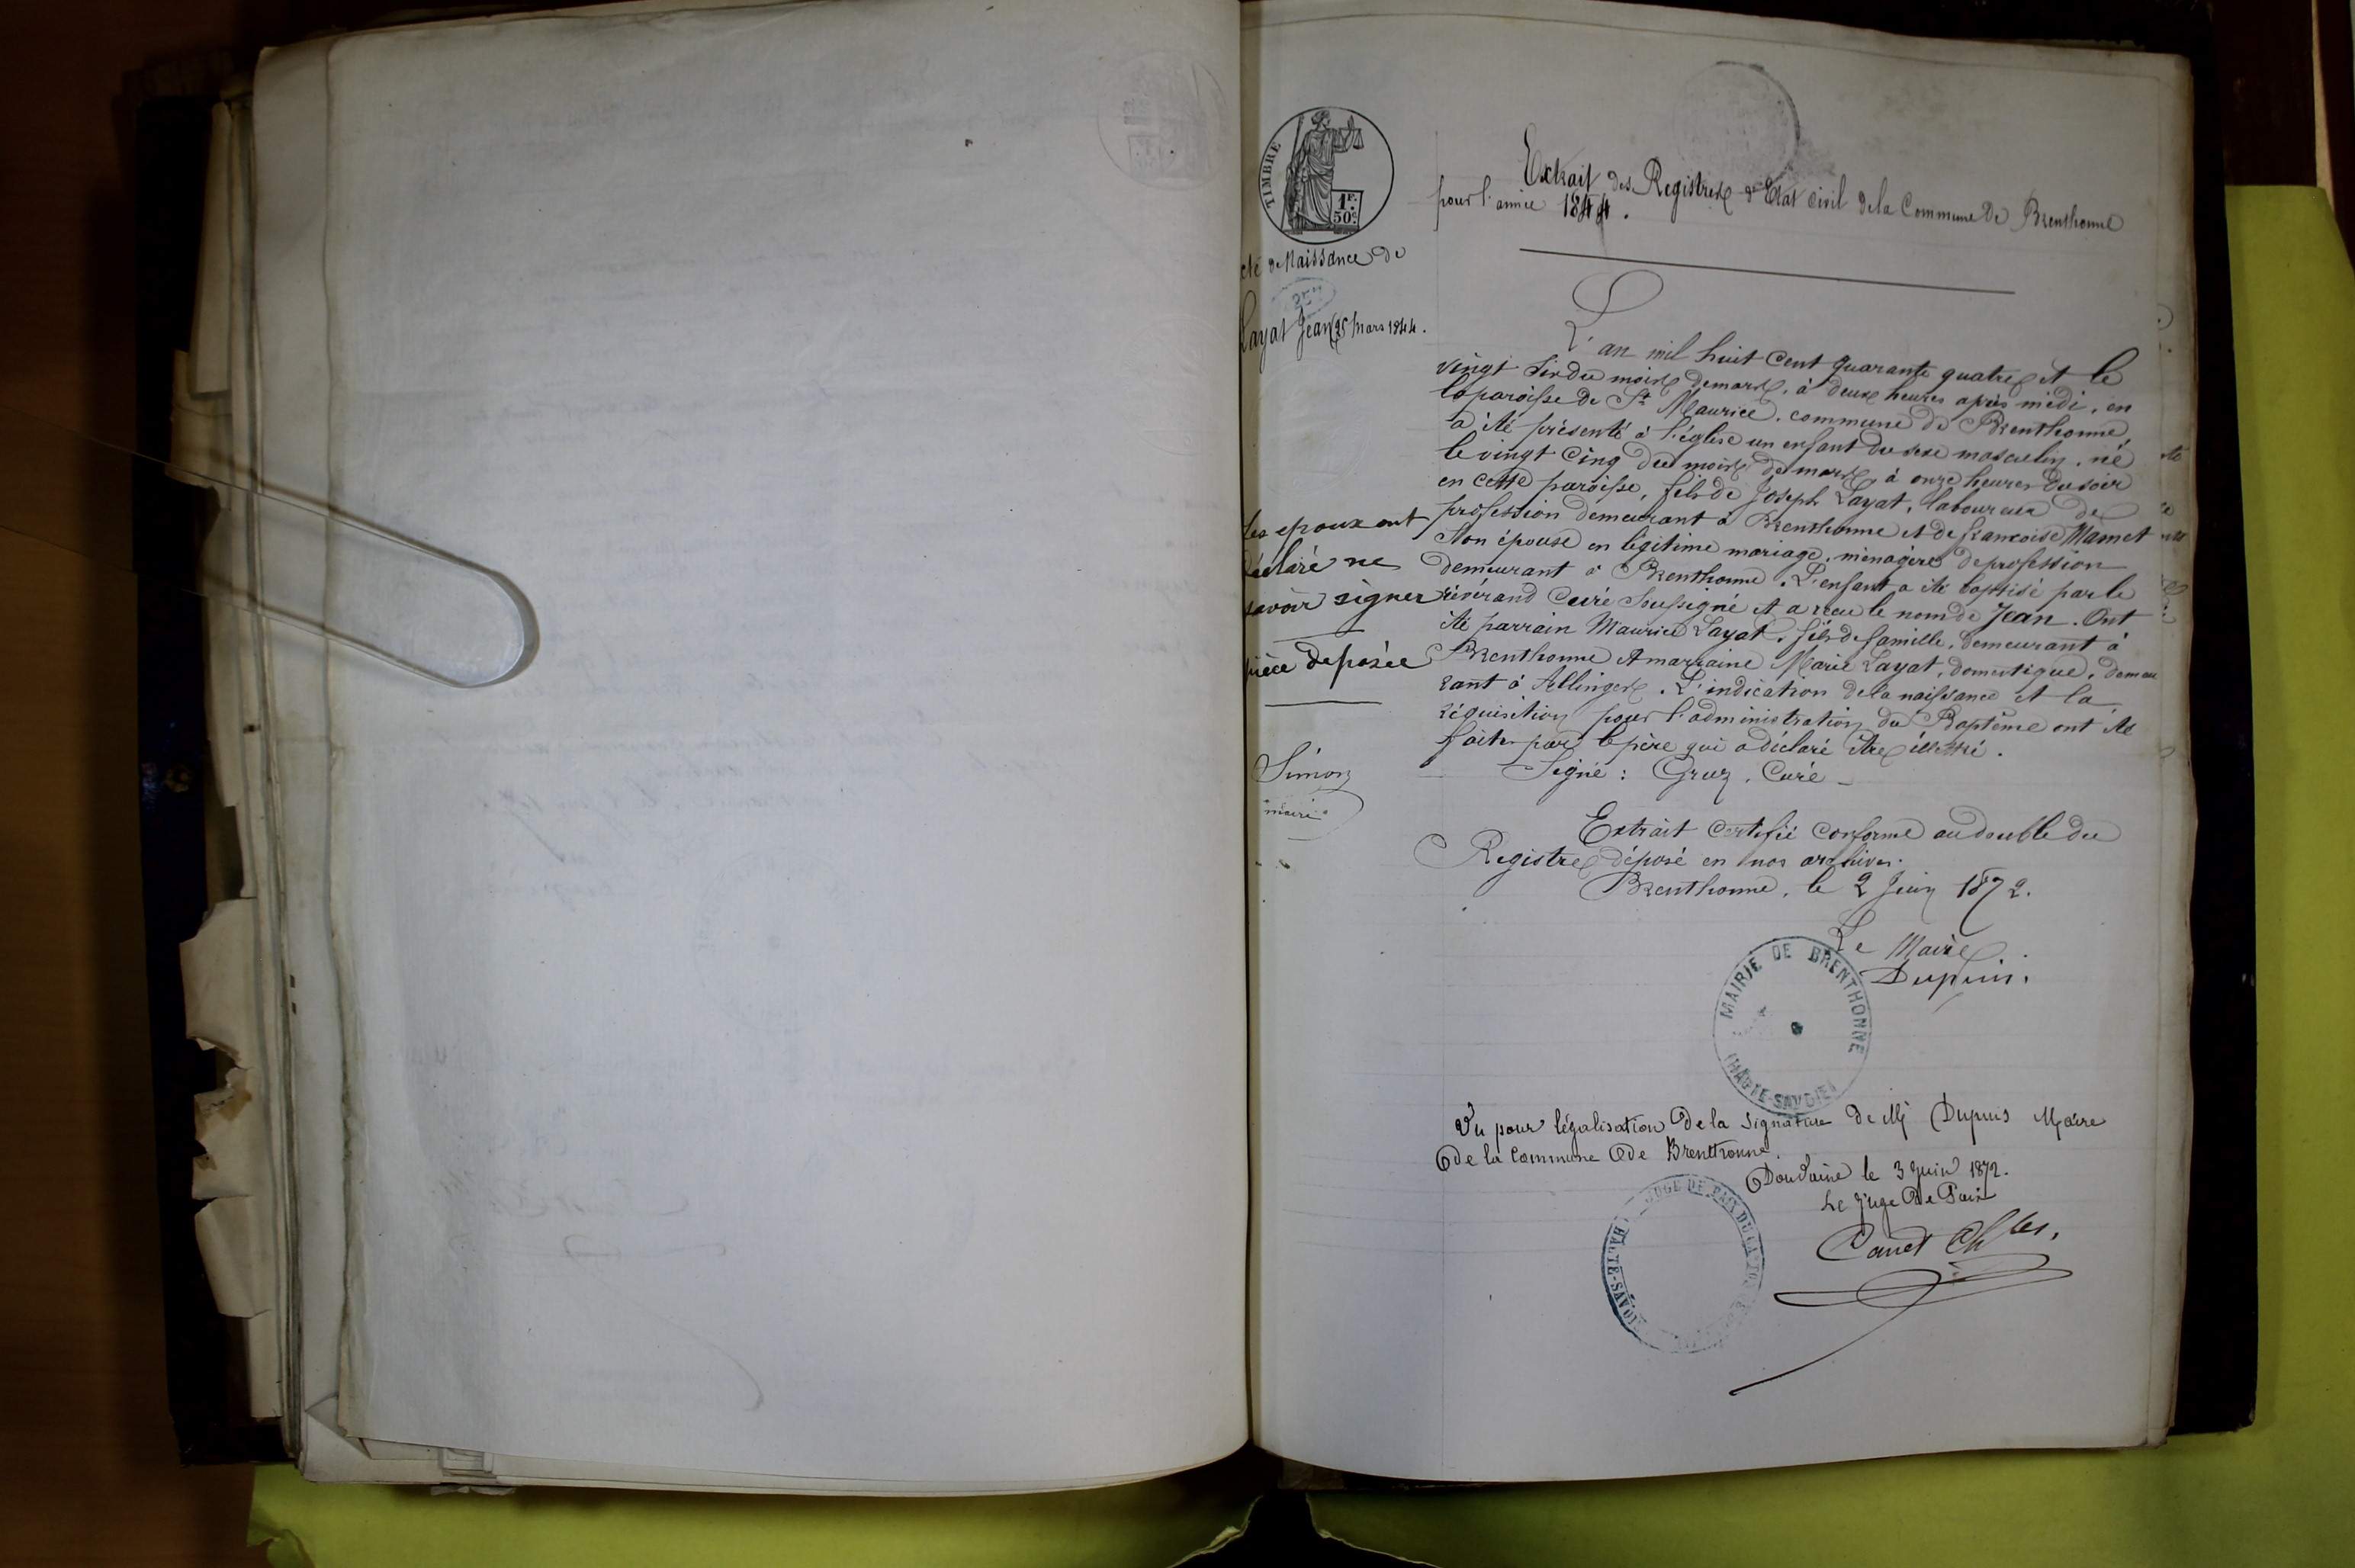 TIMBRE
1F.
50c.
Extrait des Registres d'Etat civil de la Commune de Brenthonne
pour l'année 1844.
cte de Naissance de
Layat Jean 25 Mars 1844.
L'an mil huit cent quarante quatre et le
vingt six du mois de mars, à deux heures après midi, en
la paroisse de St Maurice, commune de Brenthonne,
a été présenté à l'église un enfant du sexe masculin, né
le vingt cinq du mois de mars à onze heures du soir
en cette paroisse, fils de Joseph Layat, laboureur de
profession demeurant à Brenthonne et de francoise Mamet
son épouse en légitime mariage, ménagère de profession
demeurant à Brenthonne. L'enfant a été baptisé par le
révérand Curé Soussigné et a recu le nom de Jean. Ont
été parrain Maurice Layat, fils de famille, demeurant à
Brenthonne et marraine Marie Layat, domestique, demeu
rant à Allinges. L'indication de la naissance et la
réquisition pour l'administration du Baptême ont été
faites par le père qui a déclaré être illettré.
Signé : Gruz, Curé
Les epoux ont
déclaré ne
savoir signer
pièce déposée
Simon
maire
Extrait certifié conforme au double du
Registre déposé en nos archives.
Brenthonne, le 2 Juin 1872.
Le Maire
Dupuis.
MAIRIE DE BRENTHONNE
(HAUTE-SAVOIE)
Vu pour légalisation de la signature de M Dupuis Maire
de la Commune de Brenthonne.
Douvaine le 3 Juin 1872.
Le Juge de Paix
JUGE DE PAIX DU CANTON
HAUTE-SAVOIE